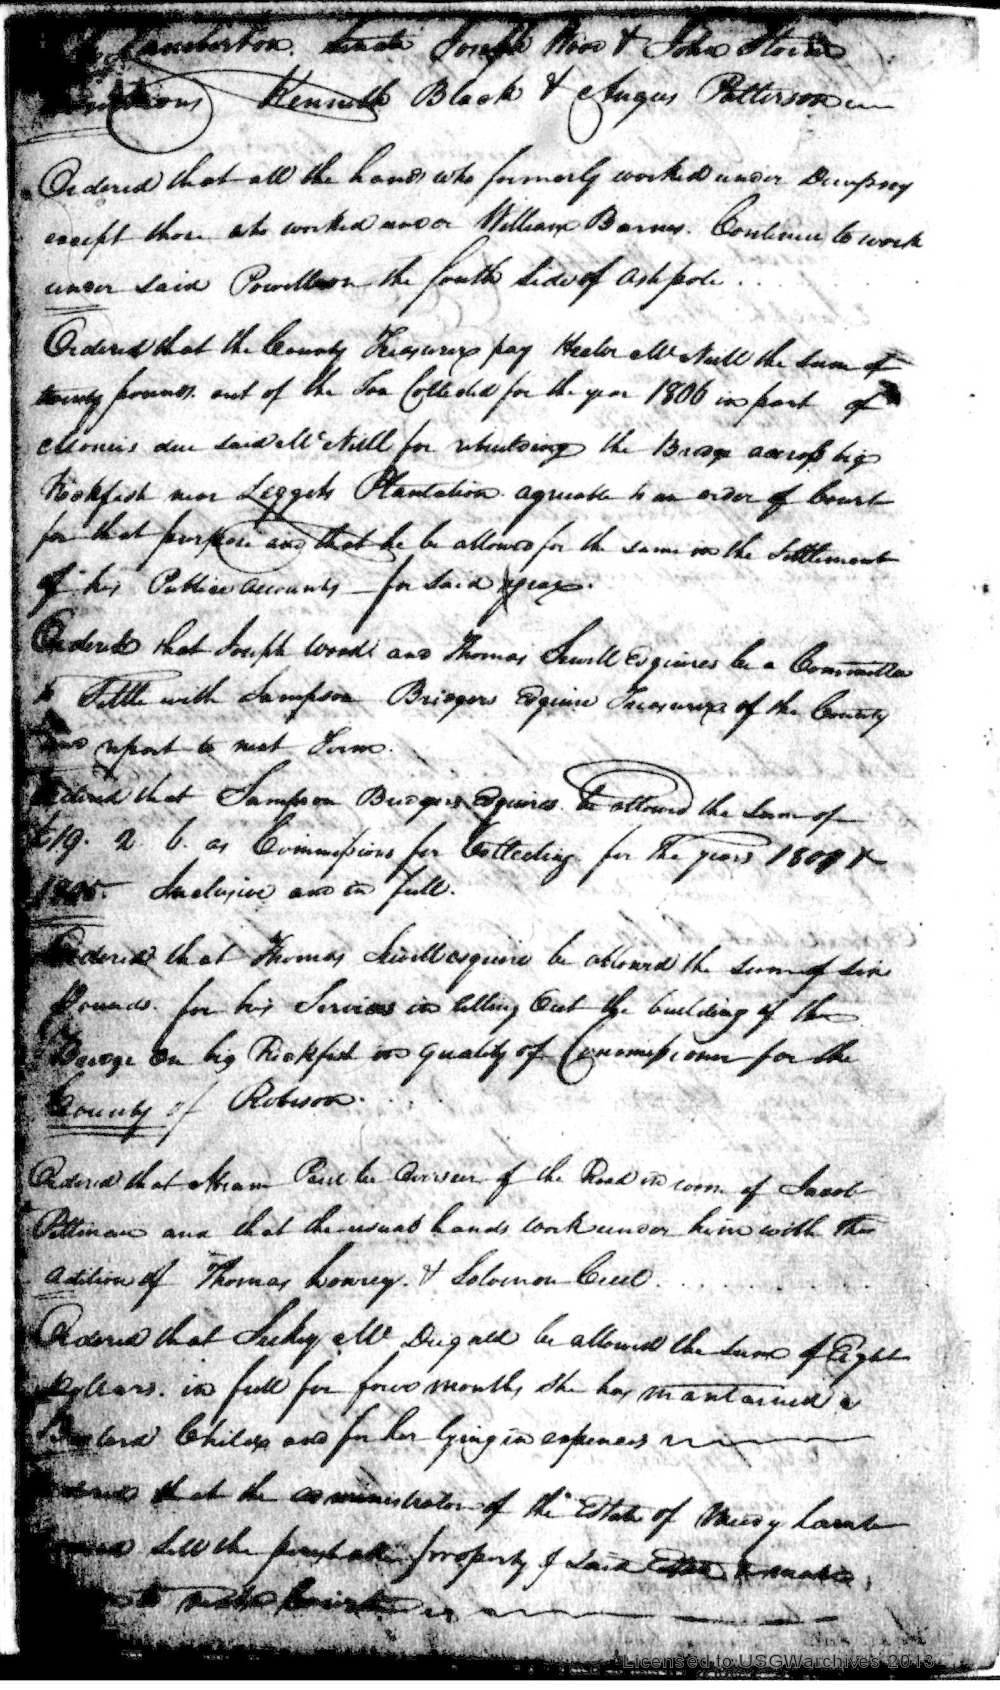 Lumberton. Senate Joseph Wood & John Storm
Commons Kenneth Black & Angus Patterson
Ordered that all the hands who formerly worked under Dempsey
except those who worked under William Barnes. Continue to work
under said Powell on the South Side of Ashpole . .
Ordered that the County Treasurer pay Hector McNeill the sum of
twenty pounds. out of the Tax Collected for the year 1806 in part of
Monies due said McNeill for rebuilding the Bridge across big
Rockfish near Leggets Plantation agreable to an order of Court
for that purpose and that he be allowed for the same in the Settlement
of his Public accounts for said year.
Ordered that Joseph Wood and Thomas Sewell Esquires be a Committee
to Settle with Sampson Bridgers Esquire Treasurer of the County
and report to next Term.
Ordered that Sampson Bridgers Esquire be allowed the Sum of
£19. 2. 6. as Commissions for Collecting for the years 1804 &
1805. Inclusive and in full.
Ordered that Thomas Sewell esquire be allowed the sum of six
Pounds. for his Services in letting Out the building of the
Bridge on big Rockfish in quality of Commissioner for the
County of Robeson.
Ordered that Abram Paul be Overseer of the Road in room of Jacob
Pittman and that the usual hands work under him with the
adition of Thomas Lowrey. & Solomon Cecil.
Ordered that Sukey McDugald be allowed the sum of Eight
Dollars. in full for four months she has mantained a
Bastard Child and for her lying in expences
Ordered that the administrator of the Estate of Meedy Lamb
sell the perishable property of said Estate & make
to next Court
Licensed to USGWarchives 2013